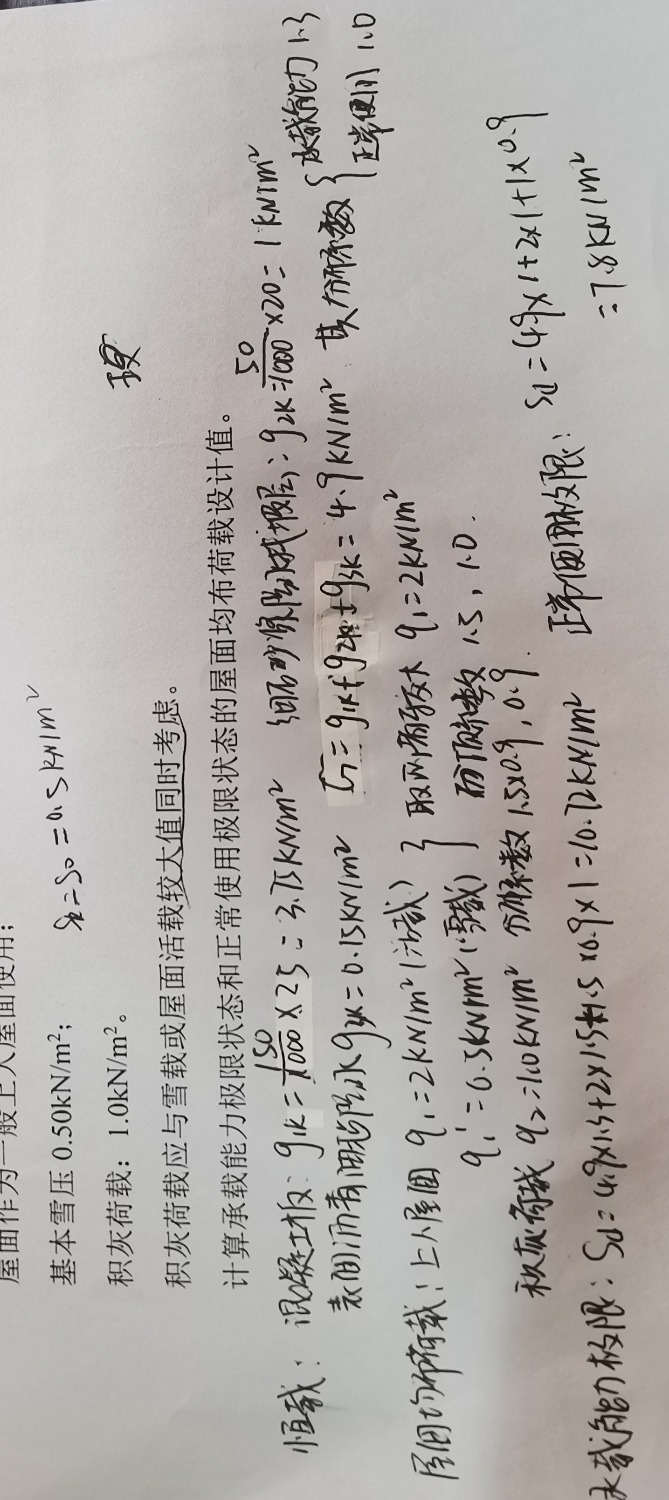 屋面作为一般上人屋面使用；
基本雪压 0.50kN/m²； Sk=S0=0.5kN/m²
积灰荷载：1.0kN/m²。
积灰荷载应与雪载或屋面活载较大值同时考虑。
计算承载能力极限状态和正常使用极限状态的屋面均布荷载设计值。
恒载：混凝土板：g1k=150/1000×25=3.75kN/m² 细石砂浆防水找坡层：g2k=50/1000×20=1kN/m²
表面沥青油毡防水g3k=0.15kN/m² G=g1k+g2k+g3k=4.9kN/m² 其分项系数{承载能力1.3 正常使用1.0
屋面均布荷载：上人屋面 q1=2kN/m²(活载) } 取两者较大 q1=2kN/m²
q1'=0.5kN/m²(雪载) } 分项系数1.5，1.0.
积灰荷载 q2=1.0kN/m² 分项系数1.5×0.9，0.9.
承载能力极限：Sd=4.9×1.3+2×1.5+1.5×0.9×1=10.72kN/m² 正常使用极限：Sd=4.9×1+2×1+1×0.9
=7.8kN/m²